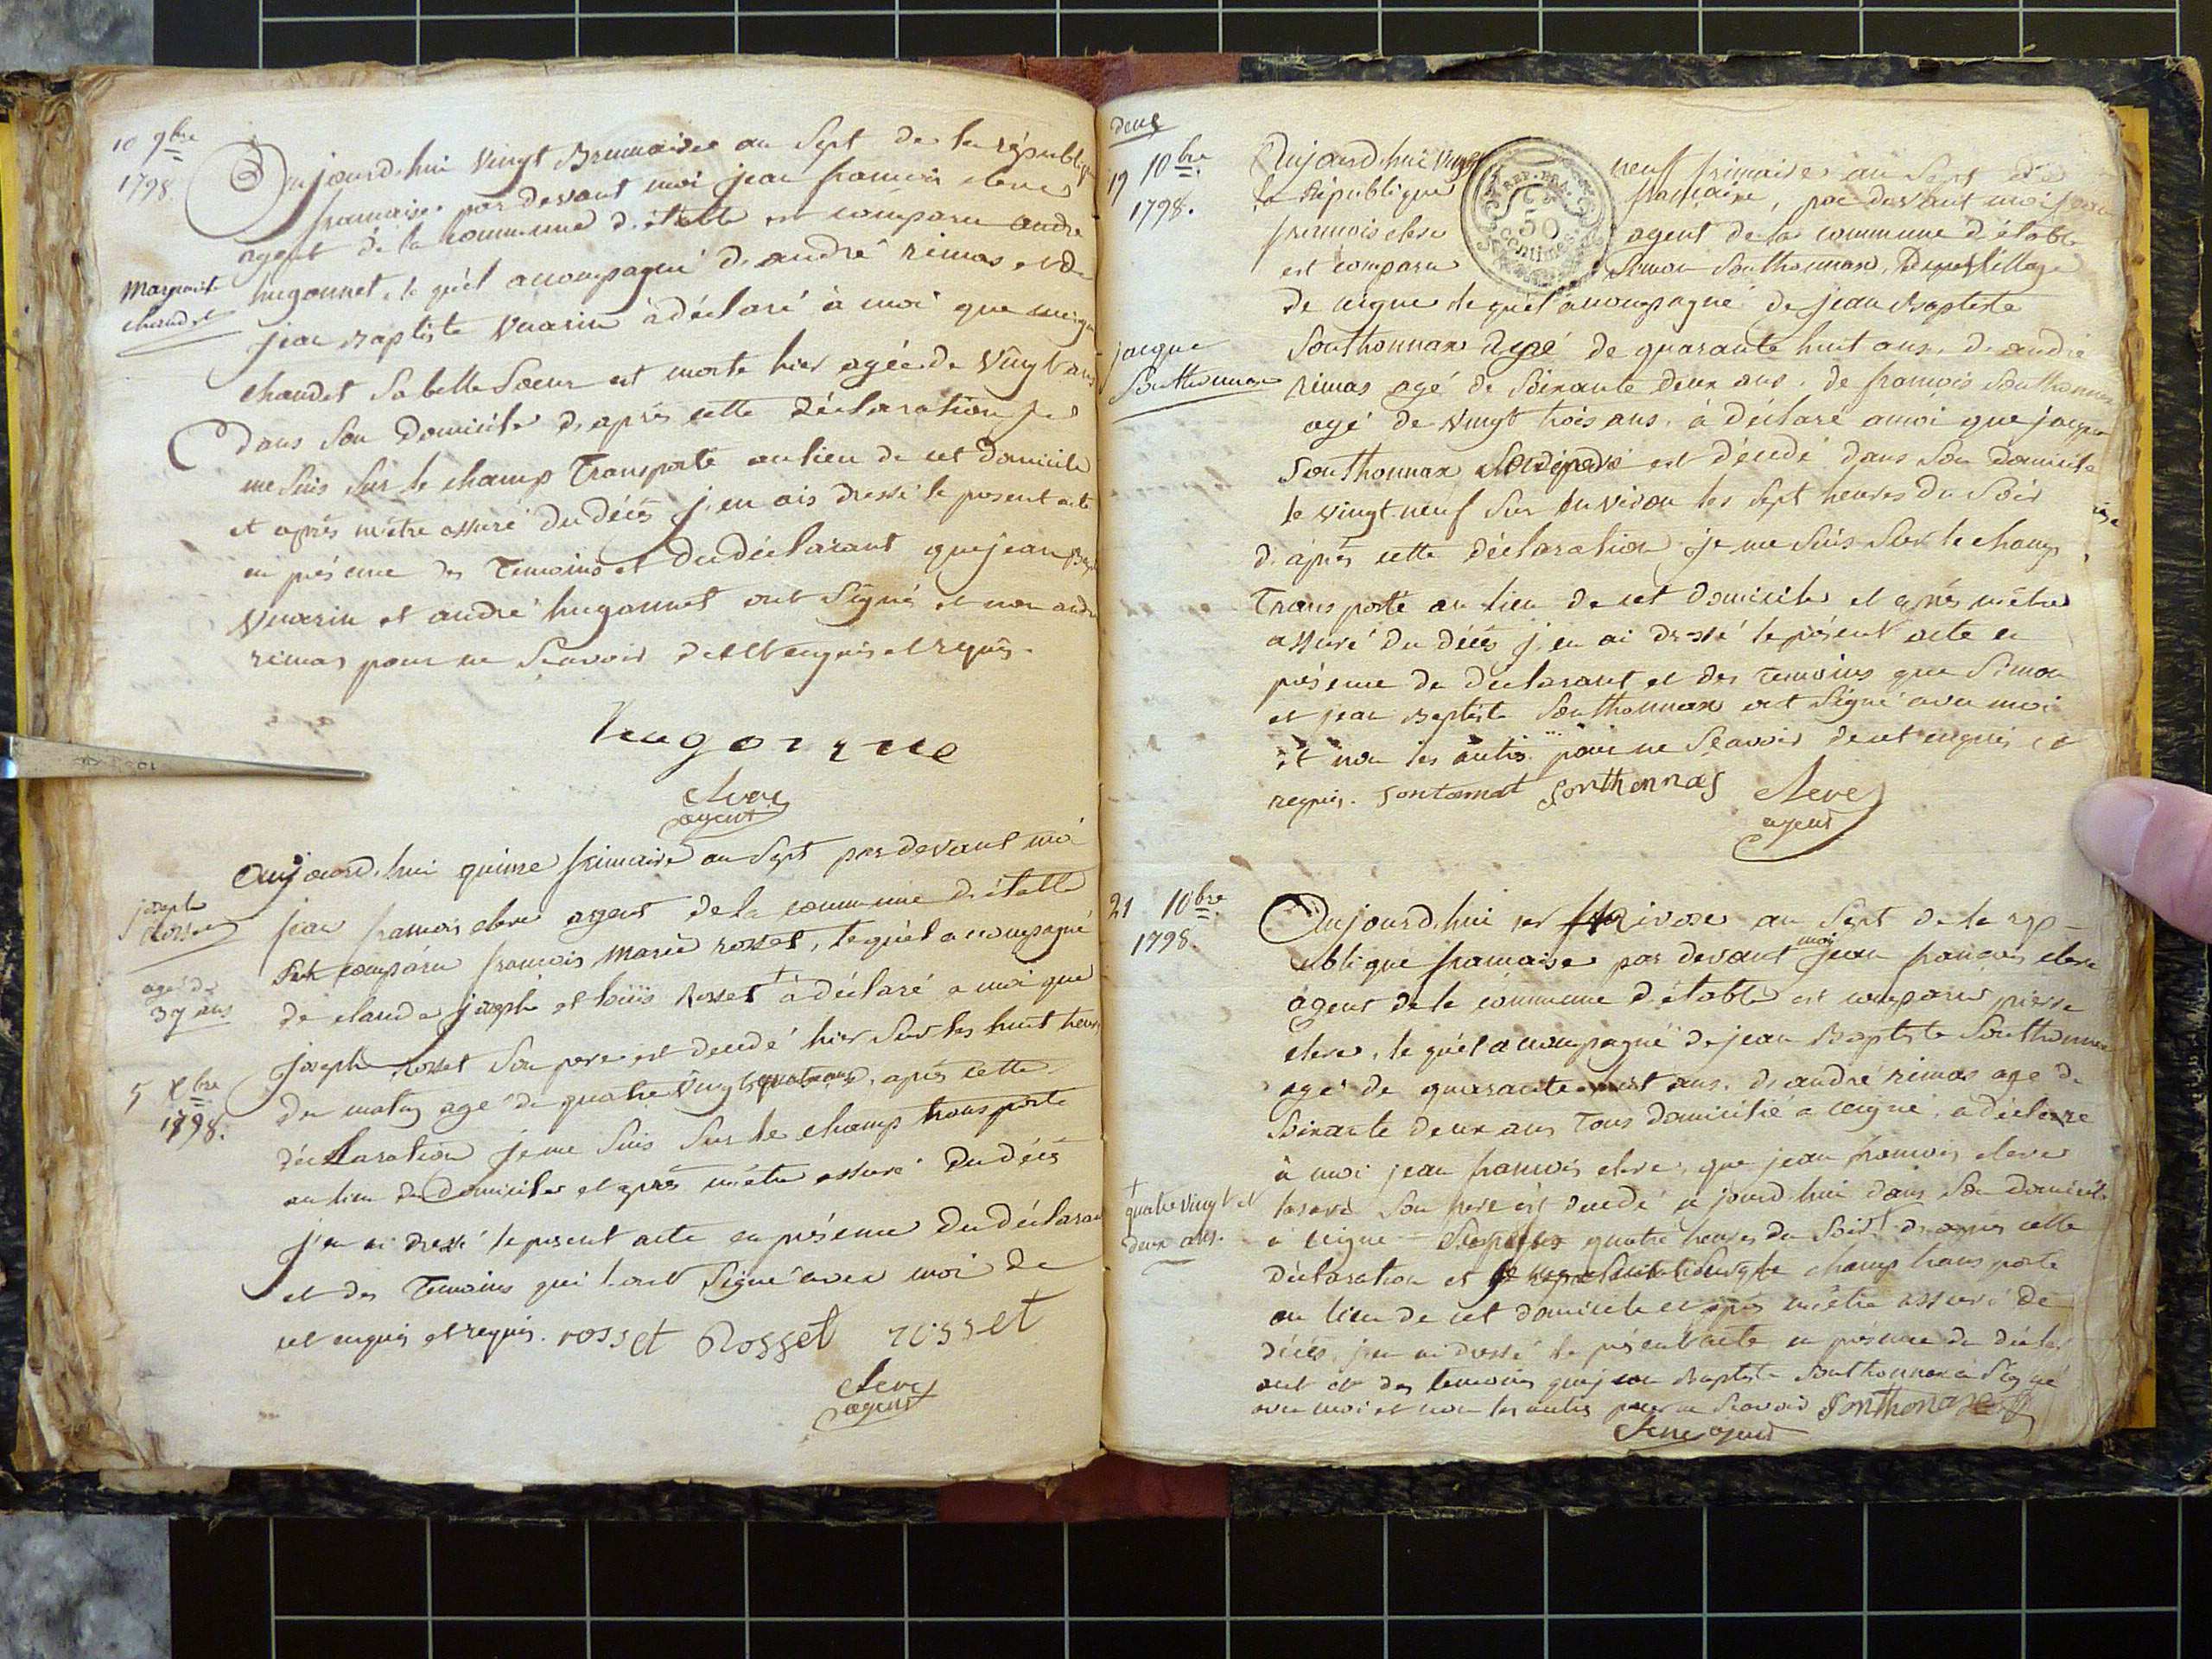 10 9bre
1798
Aujourd'hui vingt Brumaire an Sept de la républiq
francaise par devant moi jean francois clere
agent de la commune d'étable est comparu andre
Marguerite
chaudet
hugonnet, le quél acompagné de andré rimas et de
jean Baptiste Vuarin à déclaré à moi que
chaudet Sa belle Soeur est morte hier agée de Vingt ans
dans Son Domicile d'après cette Déclaration je
me Suis Sur le champ Transporté au lieu de cet Domicile
et après mêtre assuré du décès j'en ais dressé le present acte
en présence des Temoins et du déclarant que jean Bap
Vuarin et andré hugonnet ont Signés et non andre
rimas pour ne Scavoir de cet enquis et requis.
hugonne
clere
agent
Aujourd'hui quinze frimaire an Sept par devant moi
joseph
Rosset
jean francois clere agent de la commune d'étable
est comparu francois Marie rosset, le quél acompagné
agé de
37 ans
de claude joseph et loüis Rosset + à déclaré a moi que
joseph Rosset Son pere est decedé hier Sur les huit heures
5 Xbre
1798.
du matin agé de quatre vingt quatre ans, après cette
déclaration je me Suis Sur le champ transporté
au lieu du Domicile et après mêtre assuré du décès
j'en ai dressé le present acte en présence du déclarant
et des Temoins qui l'ont Signé avec moi de
cet enquis et requis. rosset Rosset rosset
clere
agent
deux
19 10bre
1798.
Aujourd'hui Vingt neuf frimaire an Sept de
REP. FRA.
50
centimes
la République francaise, par devant moi jean
francois clere agent de la commune d'étable
est comparu Simon Southonnax, Du village
de ceigne le quél acompagné de jean Baptiste
jacque
Southonnax
Southonnax agé de quarante huit ans, de andre
rimas agé de Soixante deux ans. de francois Southonnax
agé de vingt trois ans. à déclaré a moi que jacque
Southonnax est décedé dans Son Domicile
le vingt-neuf Sur environ les Sept heures du Soir
d'après cette Déclaration je me Suis Sur le champ
Transporté au lieu de cet Domicile et après mêtre
assuré du décès j'en ai dressé le présent acte en
présence du declarant et des Temoins que Simon
et jean Baptiste Southonnax ont Signé avec moi
et non les autres pour ne Scavoir de cet enquis et
requis. Sontonat Sonthonnas clere
agent
21 10bre
1798.
Aujourd'hui 1er Nivose an Sept de la rép-
ublique francaise par devant moi jean francois clere
agent de la commune d'étable est comparu pierre
clere, le quél acompagné de jean Baptiste Southonnax
agé de quarante huit ans, de andré rimas agé de
Soixante deux ans Tous domicilié a ceigne, a déclarre
à moi jean francois clere, que jean francois clere
+
quatre vingt et
deux ans.
Son pere est decedé ajourd'hui dans Son Domicile
a ceigne quatre heures du Soir + d'après cette
déclaration et champ transporté
au lieu de cet domicile et après mêtre assuré de
décès, j'en ai dressé le présent acte en présence du déclar
ant et des temoins que jean Baptiste Southonnax a Signé
avec moi et non les autres pour ne Scavoir Sonthonax
clere agent